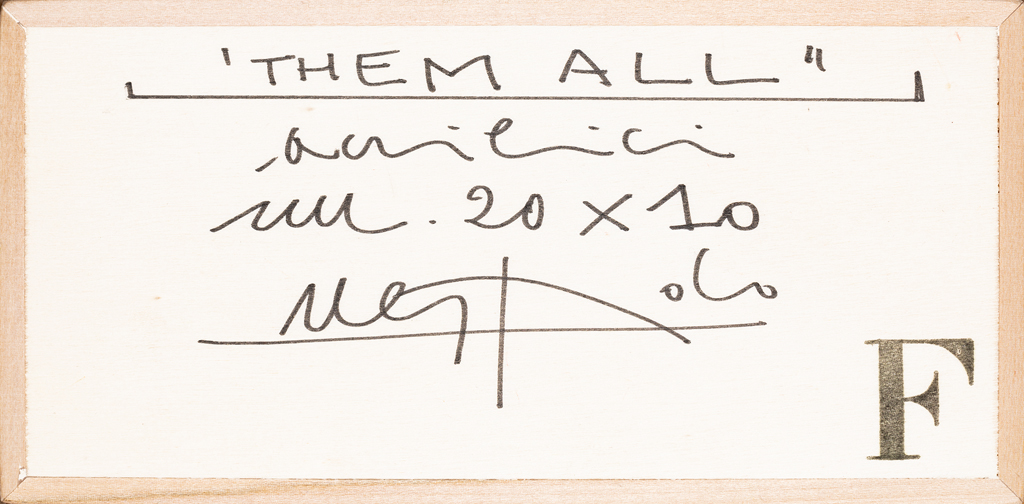 'THEM ALL"
acrilici
cm. 20 x 10
F